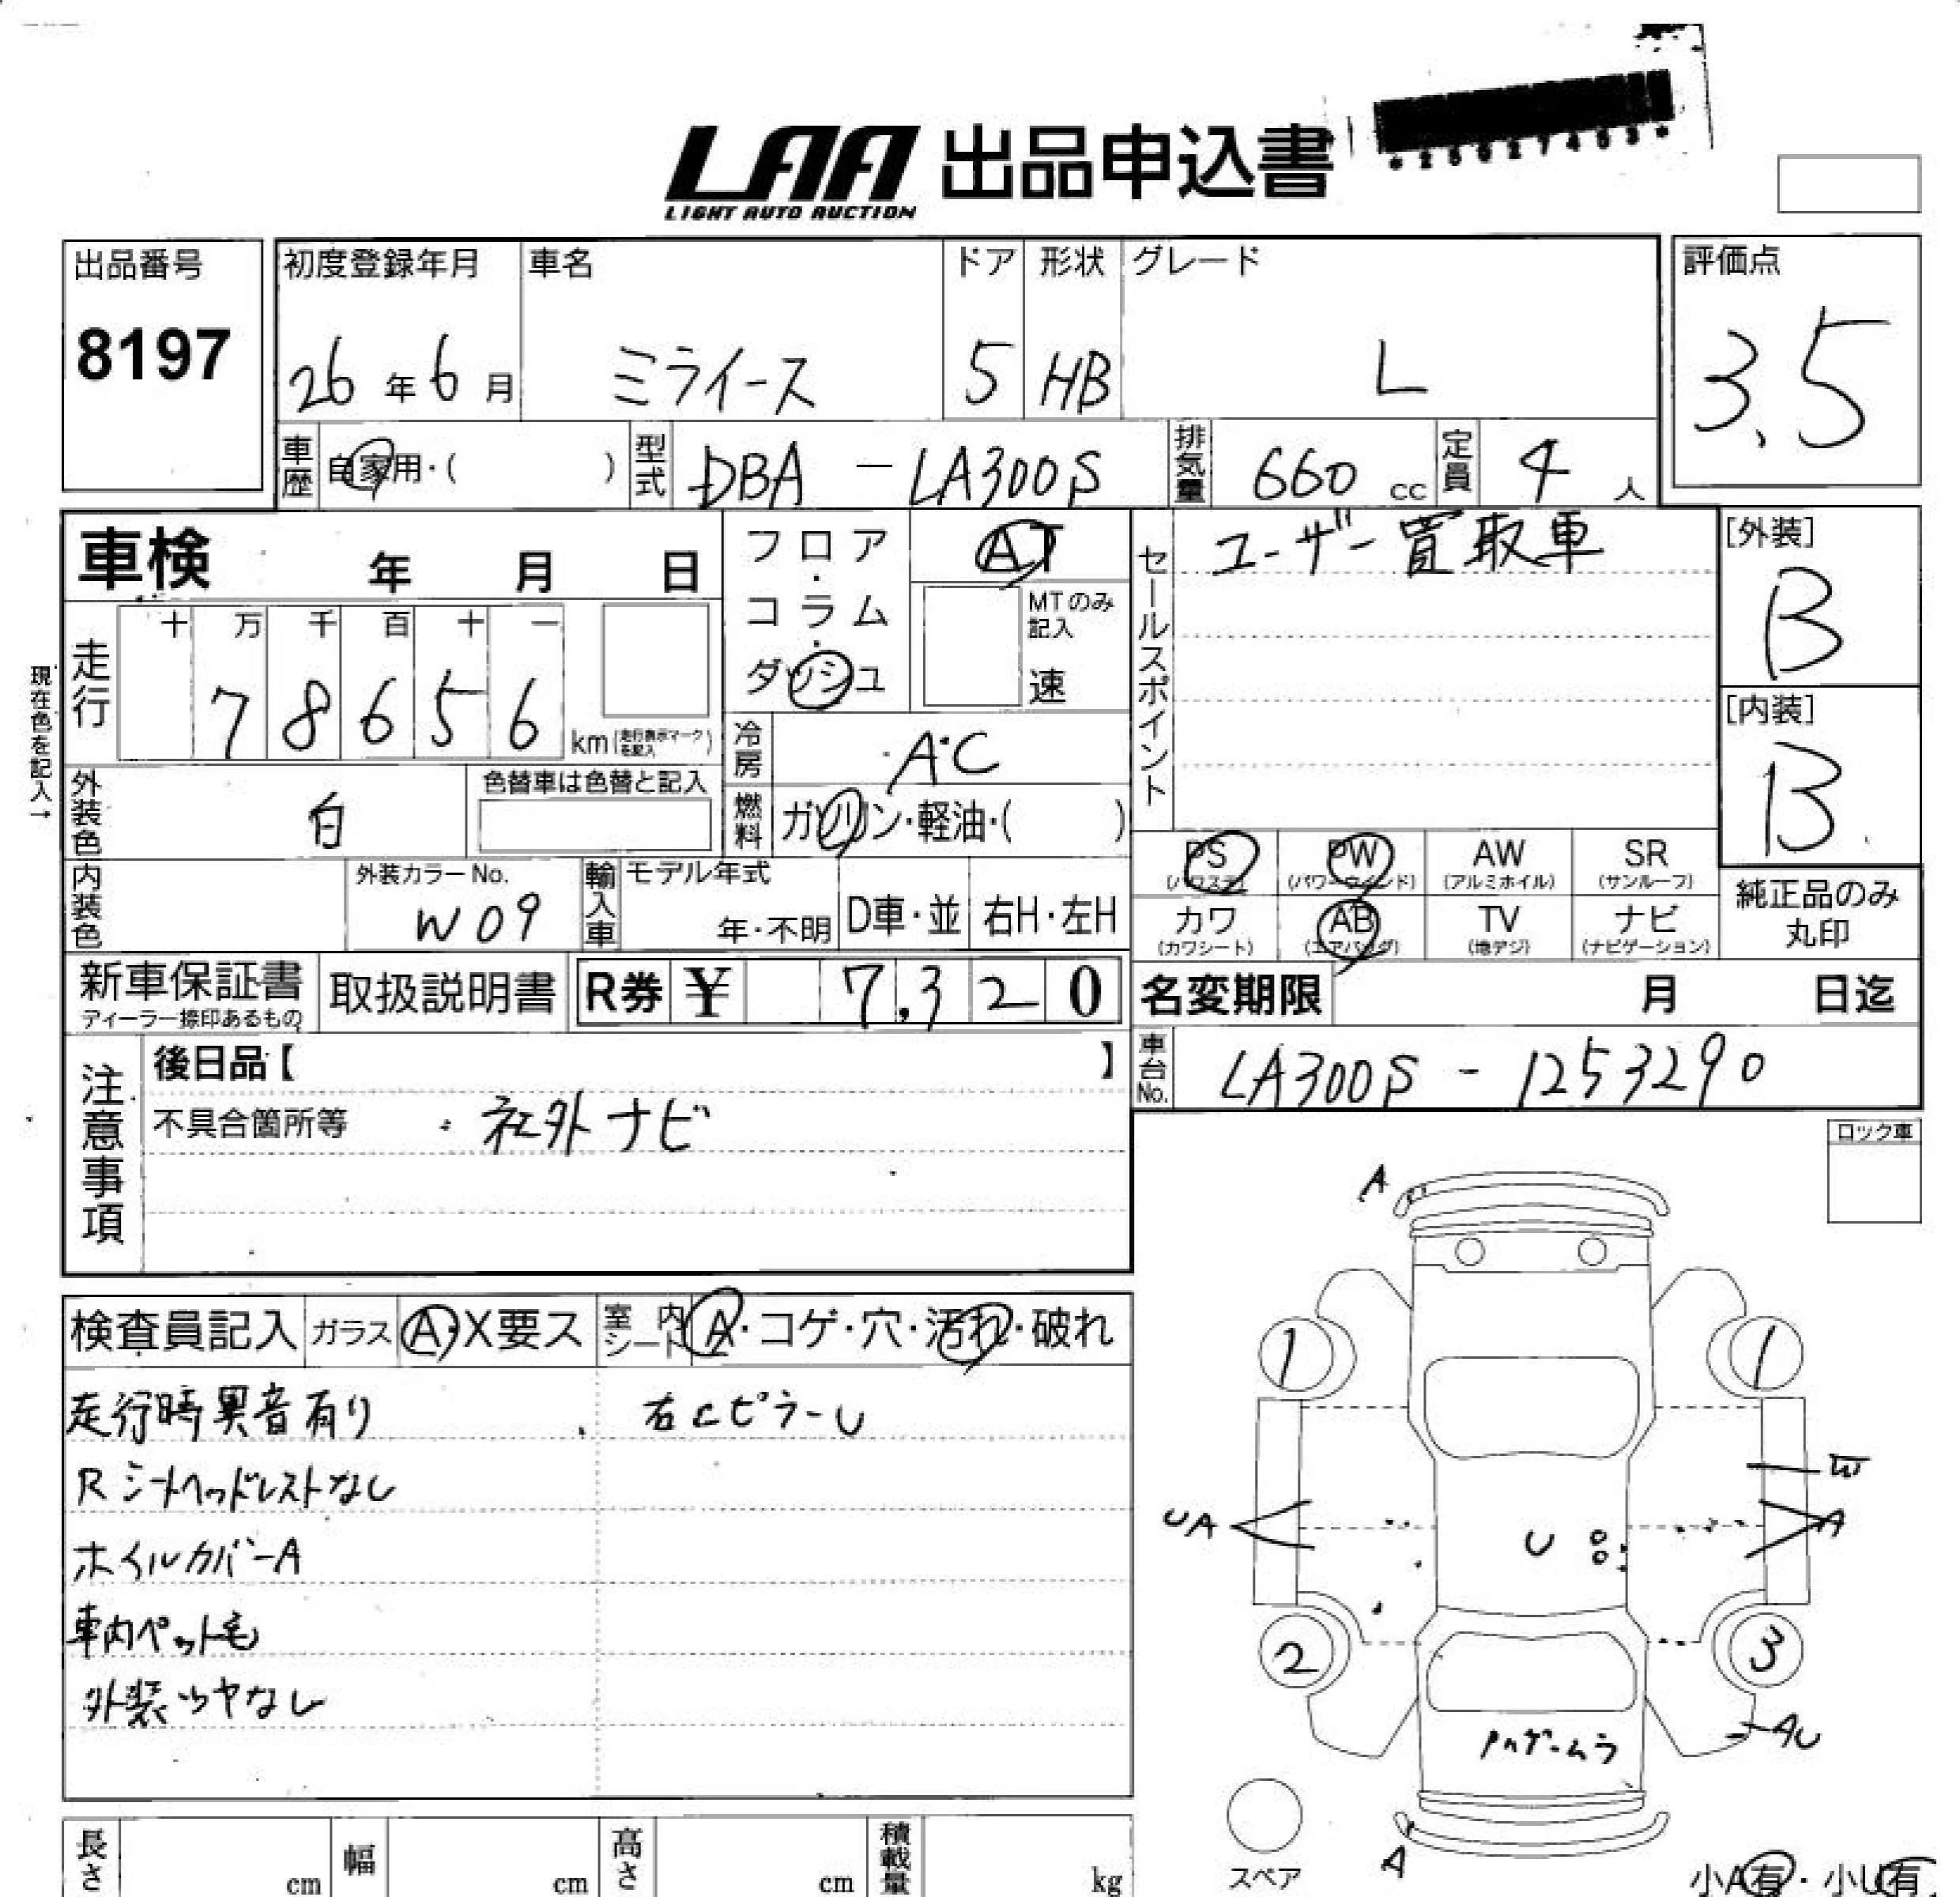 LAA 出品申込書
LIGHT AUTO AUCTION
*25627453*
出品番号
8197
初度登録年月 車名 ドア 形状 グレード
26年6月 ミライース 5 HB L
評価点
3.5
車歴 自家用・( ) 型式 DBA-LA300S 排気量 660cc 定員 4人
車検 年 月 日
フロア・コラム・ダッシュ AT
MTのみ記入 速
セールスポイント ユーザー買取車
[外装]
B
[内装]
B
現在色を記入→
走行 十 万 千 百 十 一
78656 km(走行表示マークを記入)
冷房 A・C
外装色 白 色替車は色替と記入
燃料 ガソリン・軽油・( )
PS (パワステ) PW (パワーウインド) AW (アルミホイル) SR (サンルーフ)
カワ (カワシート) AB (エアバッグ) TV (地デジ) ナビ (ナビゲーション)
純正品のみ丸印
内装色 外装カラーNo. W09 輸入車 モデル年式 年・不明 D車・並 右H・左H
新車保証書 ディーラー捺印あるもの 取扱説明書 R券 ¥ 7,320
名変期限 月 日迄
車台No. LA300S-1253290
注意事項
後日品【 】
不具合箇所等 ・社外ナビ
ロック車
検査員記入 ガラス A・X要ス 室内シート A・コゲ・穴・汚れ・破れ
走行時異音有り 右CピラーU
Rシートヘッドレストなし
ホイルカバーA
車内ペット毛
外装ツヤなし
A
1 1
W
UA U A
2 3
AU
A
スペア
小A有・小U有
長さ cm 幅 cm 高さ cm 積載量 kg